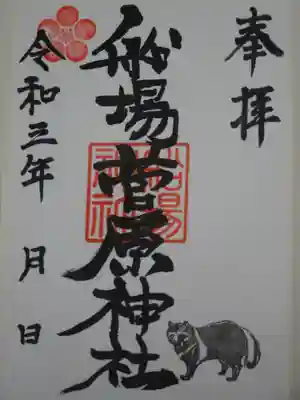 奉拝
船場菅原神社
令和三年 月 日